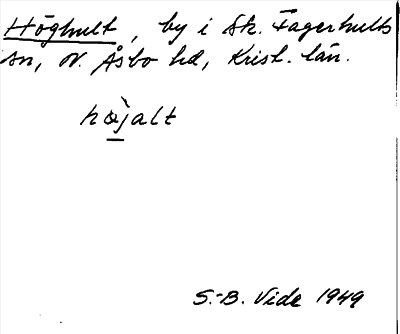 Höghult, by i Sk. Fagerhults
sn, N. Åsbo hd, Krist. län.
hæ̀jalt
S.-B. Vide 1949